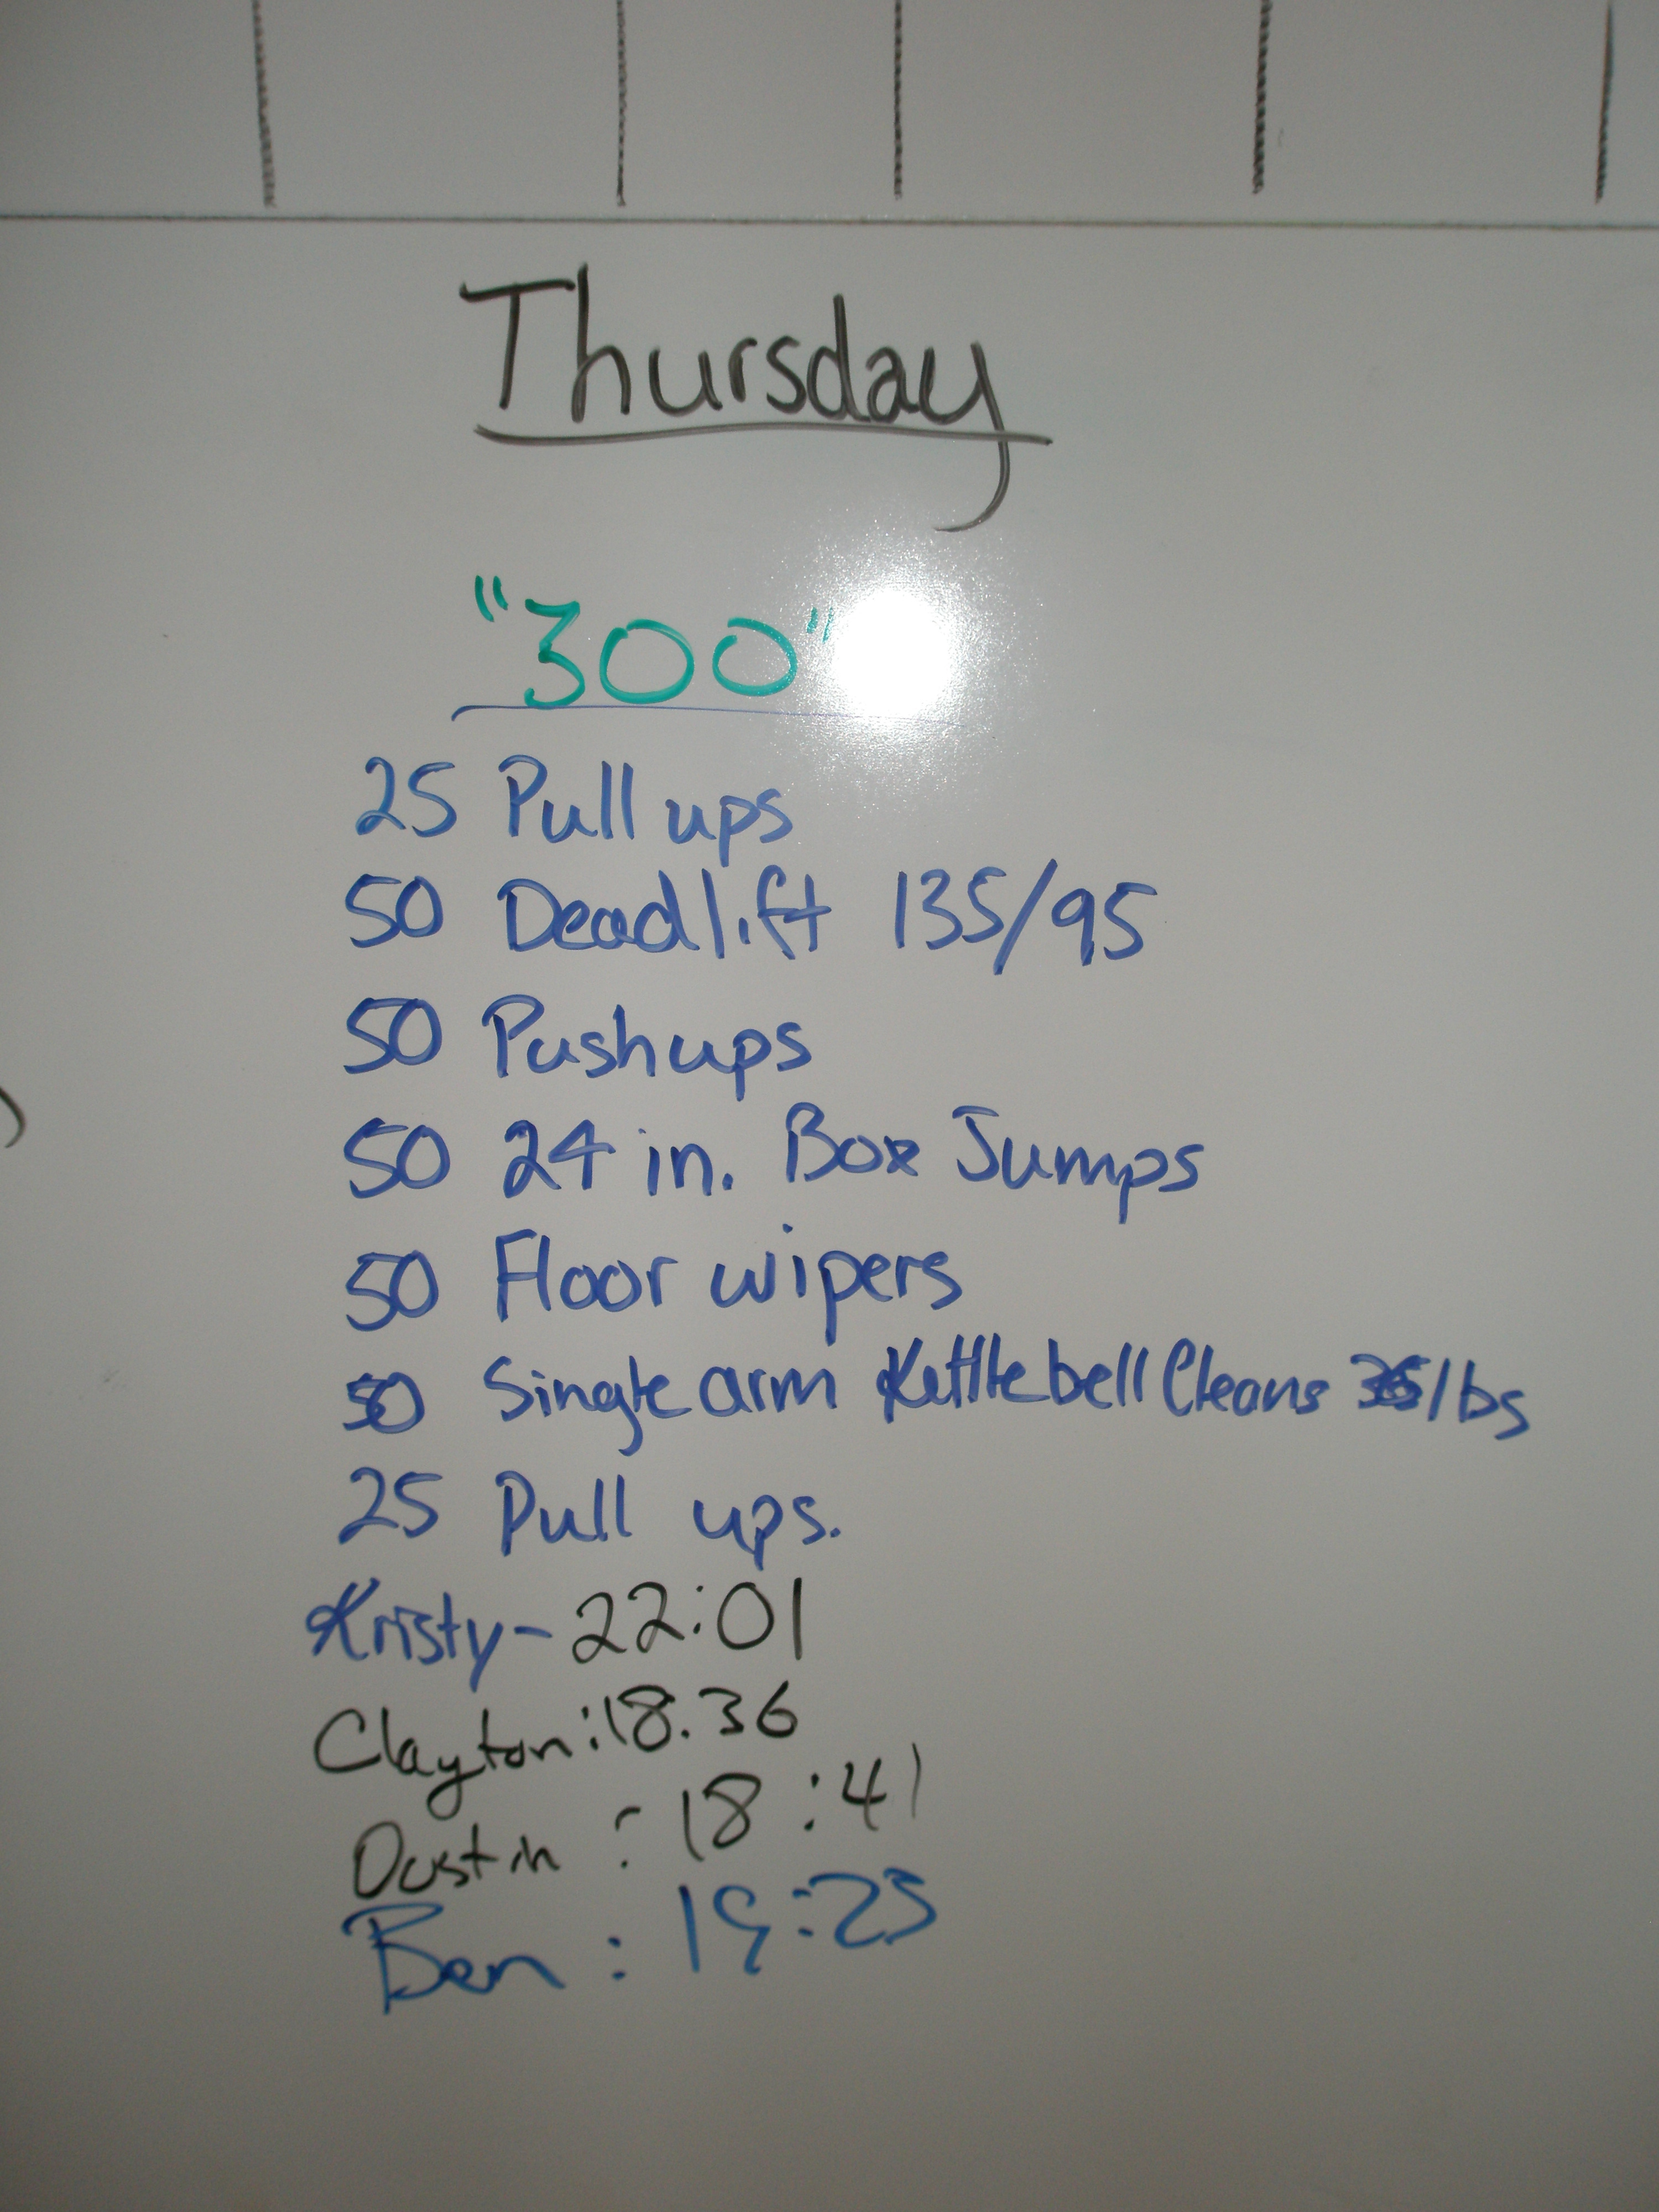 Thursday
"300"
25 Pull ups
50 Deadlift 135/95
50 Pushups
50 24 in. Box Jumps
50 Floor wipers
50 Single arm Kettlebell Cleans 36/lbs
25 Pull ups.
Kristy- 22:01
Clayton: 18:36
Dustin : 18:41
Ben : 19:25